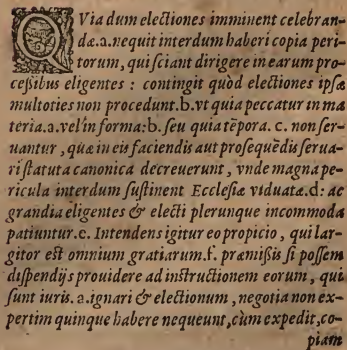 QVia dum electiones imminent celebran-
dæ.a.nequit interdum haberi copia peri-
torum, qui sciant dirigere in earum pro-
cessibus eligentes : contingit quòd electiones ipsæ
multoties non procedunt.b.vt quia peccatur in ma
teria.a.vel in forma:b. seu quia tẽpora.c. non ser-
uantur, quæ in eis faciendis aut prosequẽdis serua-
ri statuta canonica decreuerunt, vnde magna pe-
ricula interdum sustinent Ecclesiæ viduatæ.d: ac
grandia eligentes & electi plerunque incommoda
patiuntur.e. Intendens igitur eo propicio, qui lar-
gitor est omnium gratiarum.f. præmißis si possem
dispendijs prouidere ad instructionem eorum, qui
sunt iuris.a.ignari & electionum, negotia non ex-
pertim quinque habere nequeunt, cùm expedit, co-
piam